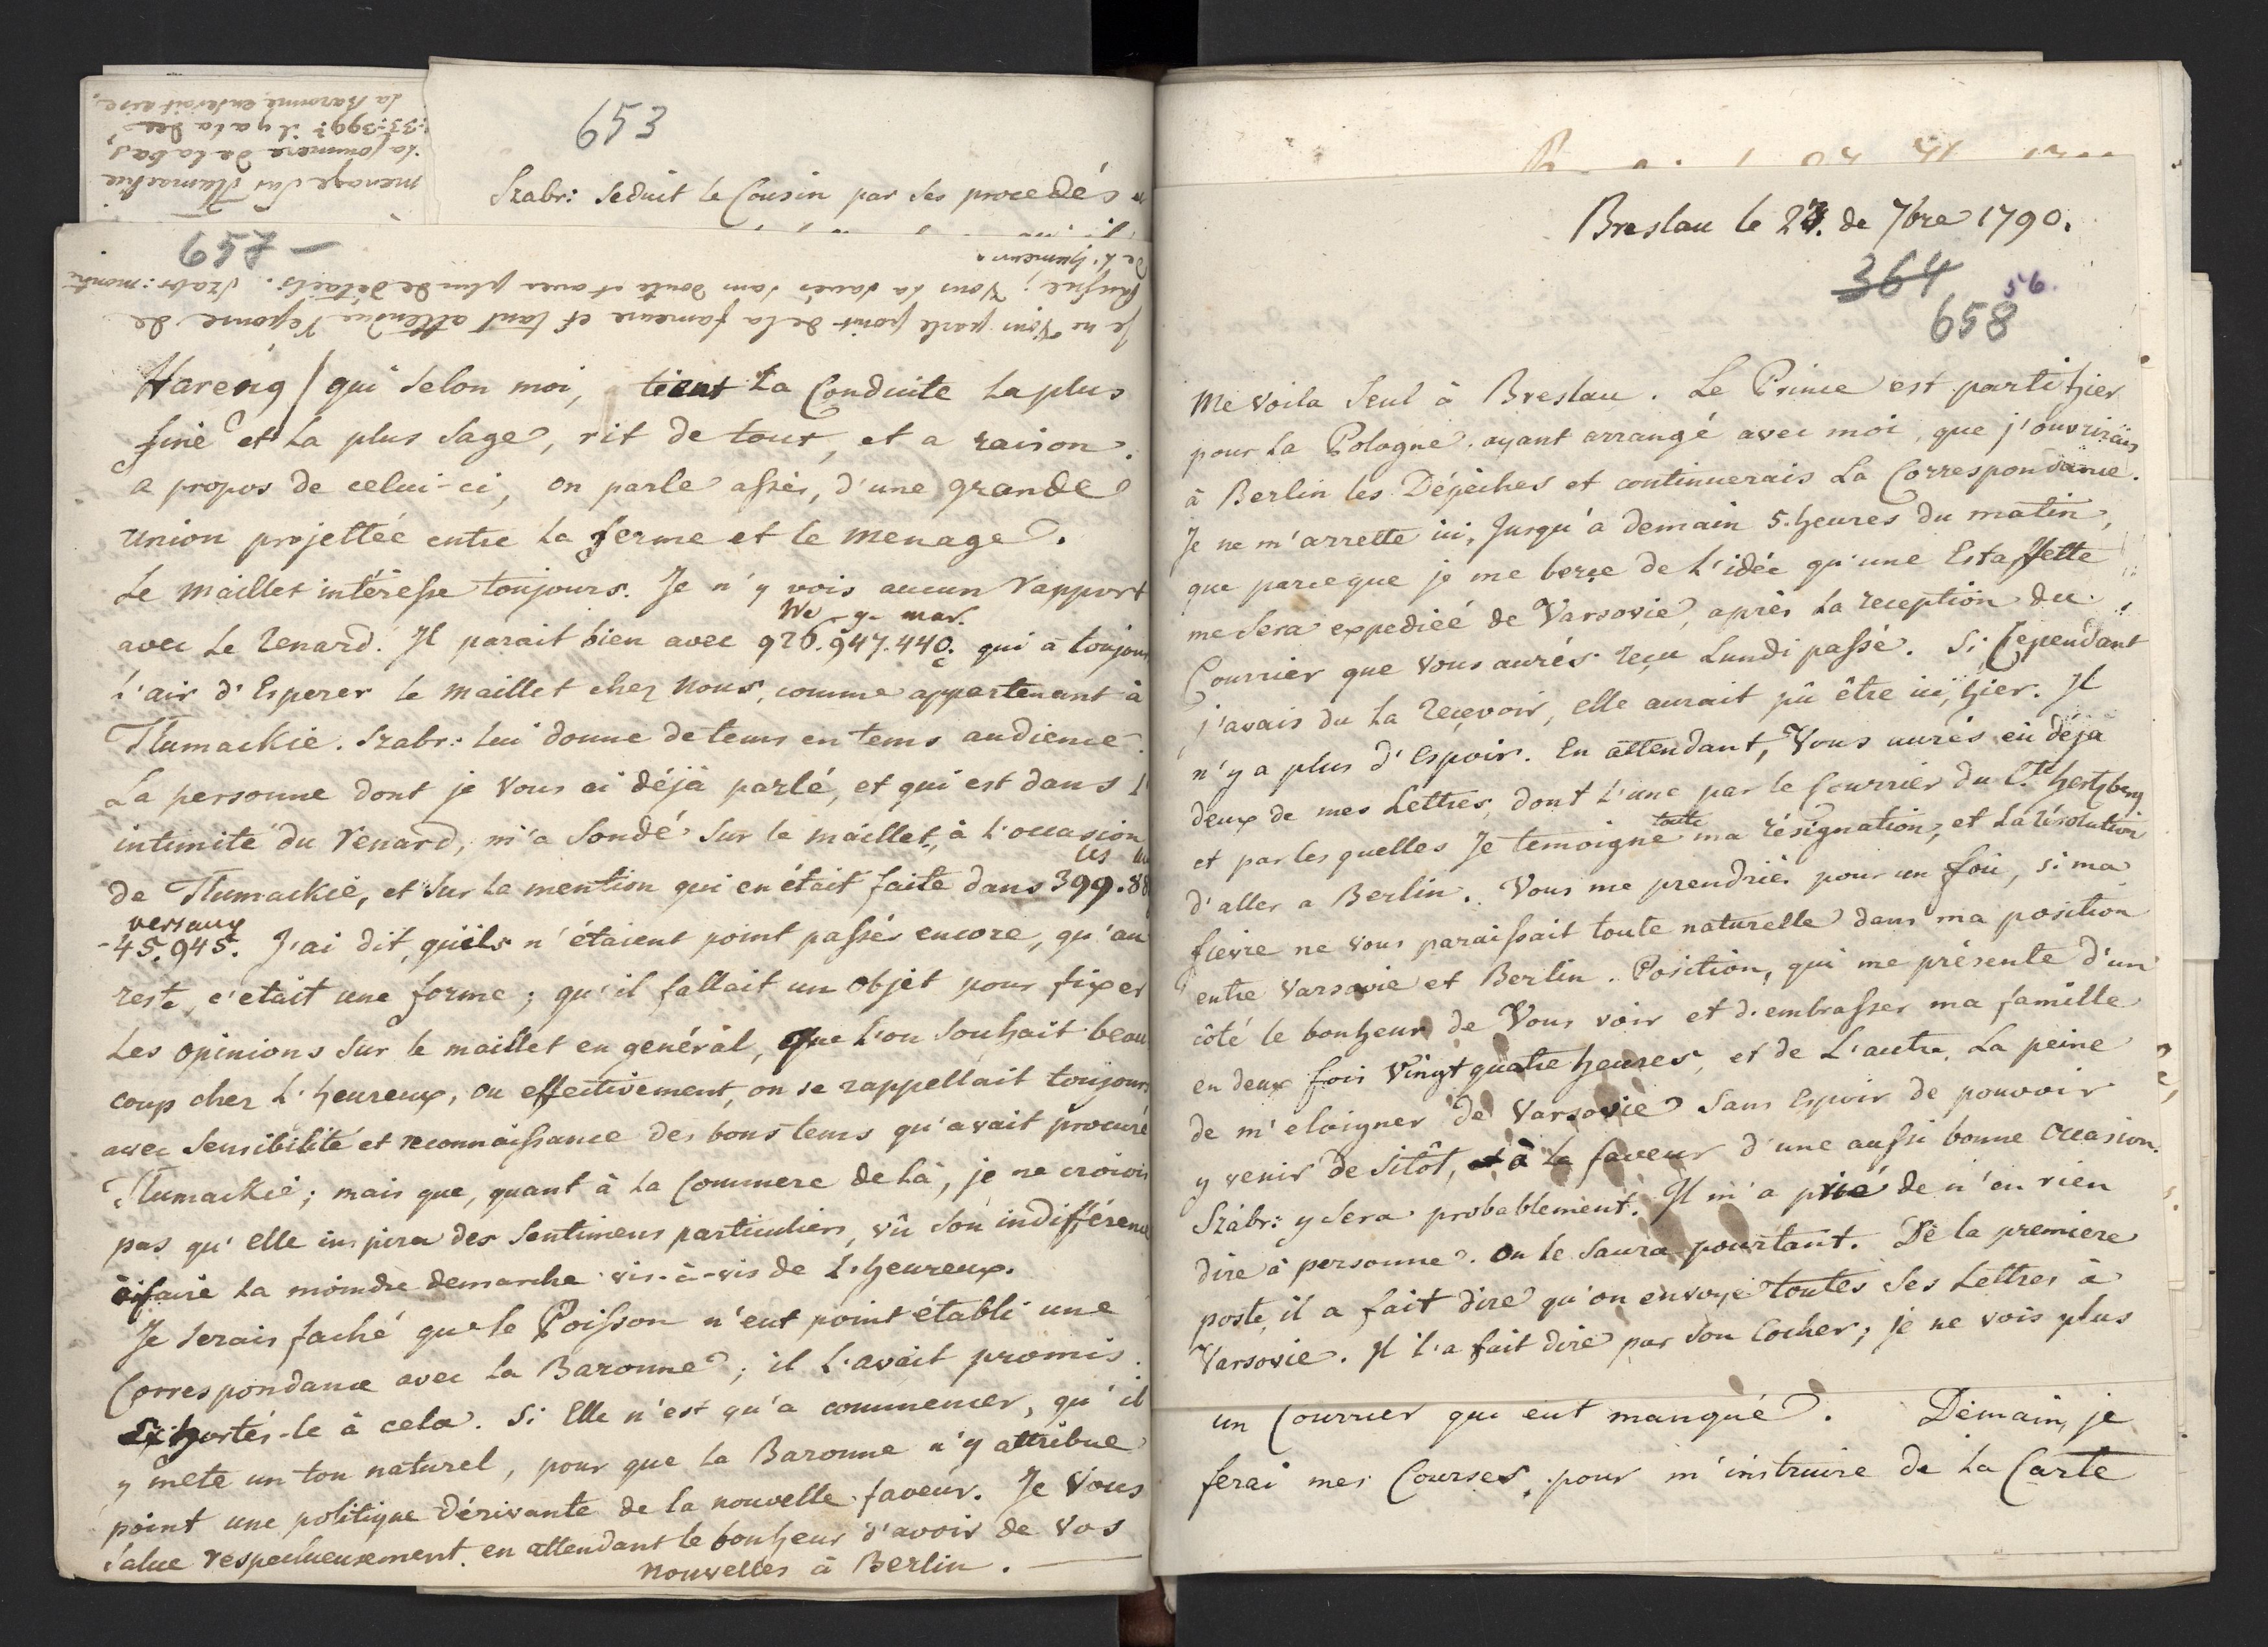 653
Szabr: seduit le Cousin par ses procedés
menage sur Tlumackie
la commere de la bas,
il y a la
La Baronne, en serait aise,
657 —
Je ne Vous parle point de la fameuse et tant attendue réponse de
Prusse; Vous la savés sans doute et avec plus de détails. Szabr: montre
de L'humeur.
Hareng / qui selon moi, tient La Conduite La plus
fine et La plus sage, rit de tout, et a raison.
a propos de celui-ci, on parle assés, d'une grande
union projettée entre La ferme et le menage.
Le maillet intéresse toujours. Je n'y vois aucun rapport
We - y - mar.
avec Le Renard. Il parait bien avec 926.947.440. qui a toujours
L'air d'Esperer le maillet chez nous, comme appartenant à
Tlumackie. Szabr: lui donne de tems en tems audience.
La personne dont je Vous ai déjà parlé, et qui est dans l'
intimité du Renard, m'a sondé sur le maillet, à l'occasion
les
de Tlumackie, et sur La mention qui en était faite dans 399.88
versaux
-45.945. J'ai dit, qu'ils n'étaient point passés encore, qu'au
reste, c'etait une forme; qu'il fallait un objet pour fixer
Les opinions sur le maillet en genéral, que l'on souhait beau
coup chez L'heureux, ou effectivement, on se rappellait toujours
avec sensibilité et reconnaissance des bons tems qu'avait procuré
Tlumackie; mais que, quant à La Commere de là, je ne croiois
pas qu'elle inspira des sentimens particuliers, vû son indifférence
à faire La moindre demarche vis-à-vis de L'heureux.
Je serais faché que le Poisson n'eut point établi une
Correspondance avec La Baronne; il L'avait promis.
Exhortés-le à cela. Si Elle n'est qu'a commencer, qu'il
y mete un ton naturel, pour que La Baronne n'y attribue
point une politique dérivante de la nouvelle faveur. Je Vous
salue respectueusement en attendant le bonheur d'avoir de Vos
nouvelles à Berlin.
Breslau le 27. de 7bre 1790.
364
56.
658
Me voila seul à Breslau. Le Prince est parti hier
pour La Pologne, ayant arrangé avec moi, que j'ouvrirais
à Berlin les Dépêches et continuerais La Correspondance.
Je ne m'arrette ici, jusqu'a demain 5. heures du matin,
que parceque je me berçe de L'idée qu'une Estaffette
me sera expediée de Varsovie, après La reception du
Courrier que Vous aurés reçu Lundi passé. Si Cependant
j'avais du La reçevoir, elle aurait pû être ici, hier. Il
n'y a plus d'Espoir. En attendant, Vous aurés eû déja
deux de mes Lettres, dont L'une par le Courrier du Cte Hertzberg
toute
et par lesquelles Je temoigne ma résignation, et La résolution
d'aller a Berlin. Vous me prendriés pour un fou, si ma
fievre ne Vous paraissait toute naturelle dans ma position
entre Varsovie et Berlin. Position, qui me présente d'un
côté le bonheur de Vous voir et d'embrasser ma famille
en deux fois Vingt quatre heures, et de L'autre, La peine
de m'eloigner de Varsovie sans Espoir de pouvoir
y venir de sitôt, à la faveur d'une aussi bonne occasion.
Szabr: y sera probablement. Il m'a prié de n'en rien
dire à personne. On le saura pourtant. De la premiere
poste, il a fait dire qu'on envoye toutes ses Lettres à
Varsovie. Il l'a fait dire par son Cocher; je ne vois plus
un Courrier qui eut manqué. Demain, je
ferai mes Courses, pour m'instruire de La Carte